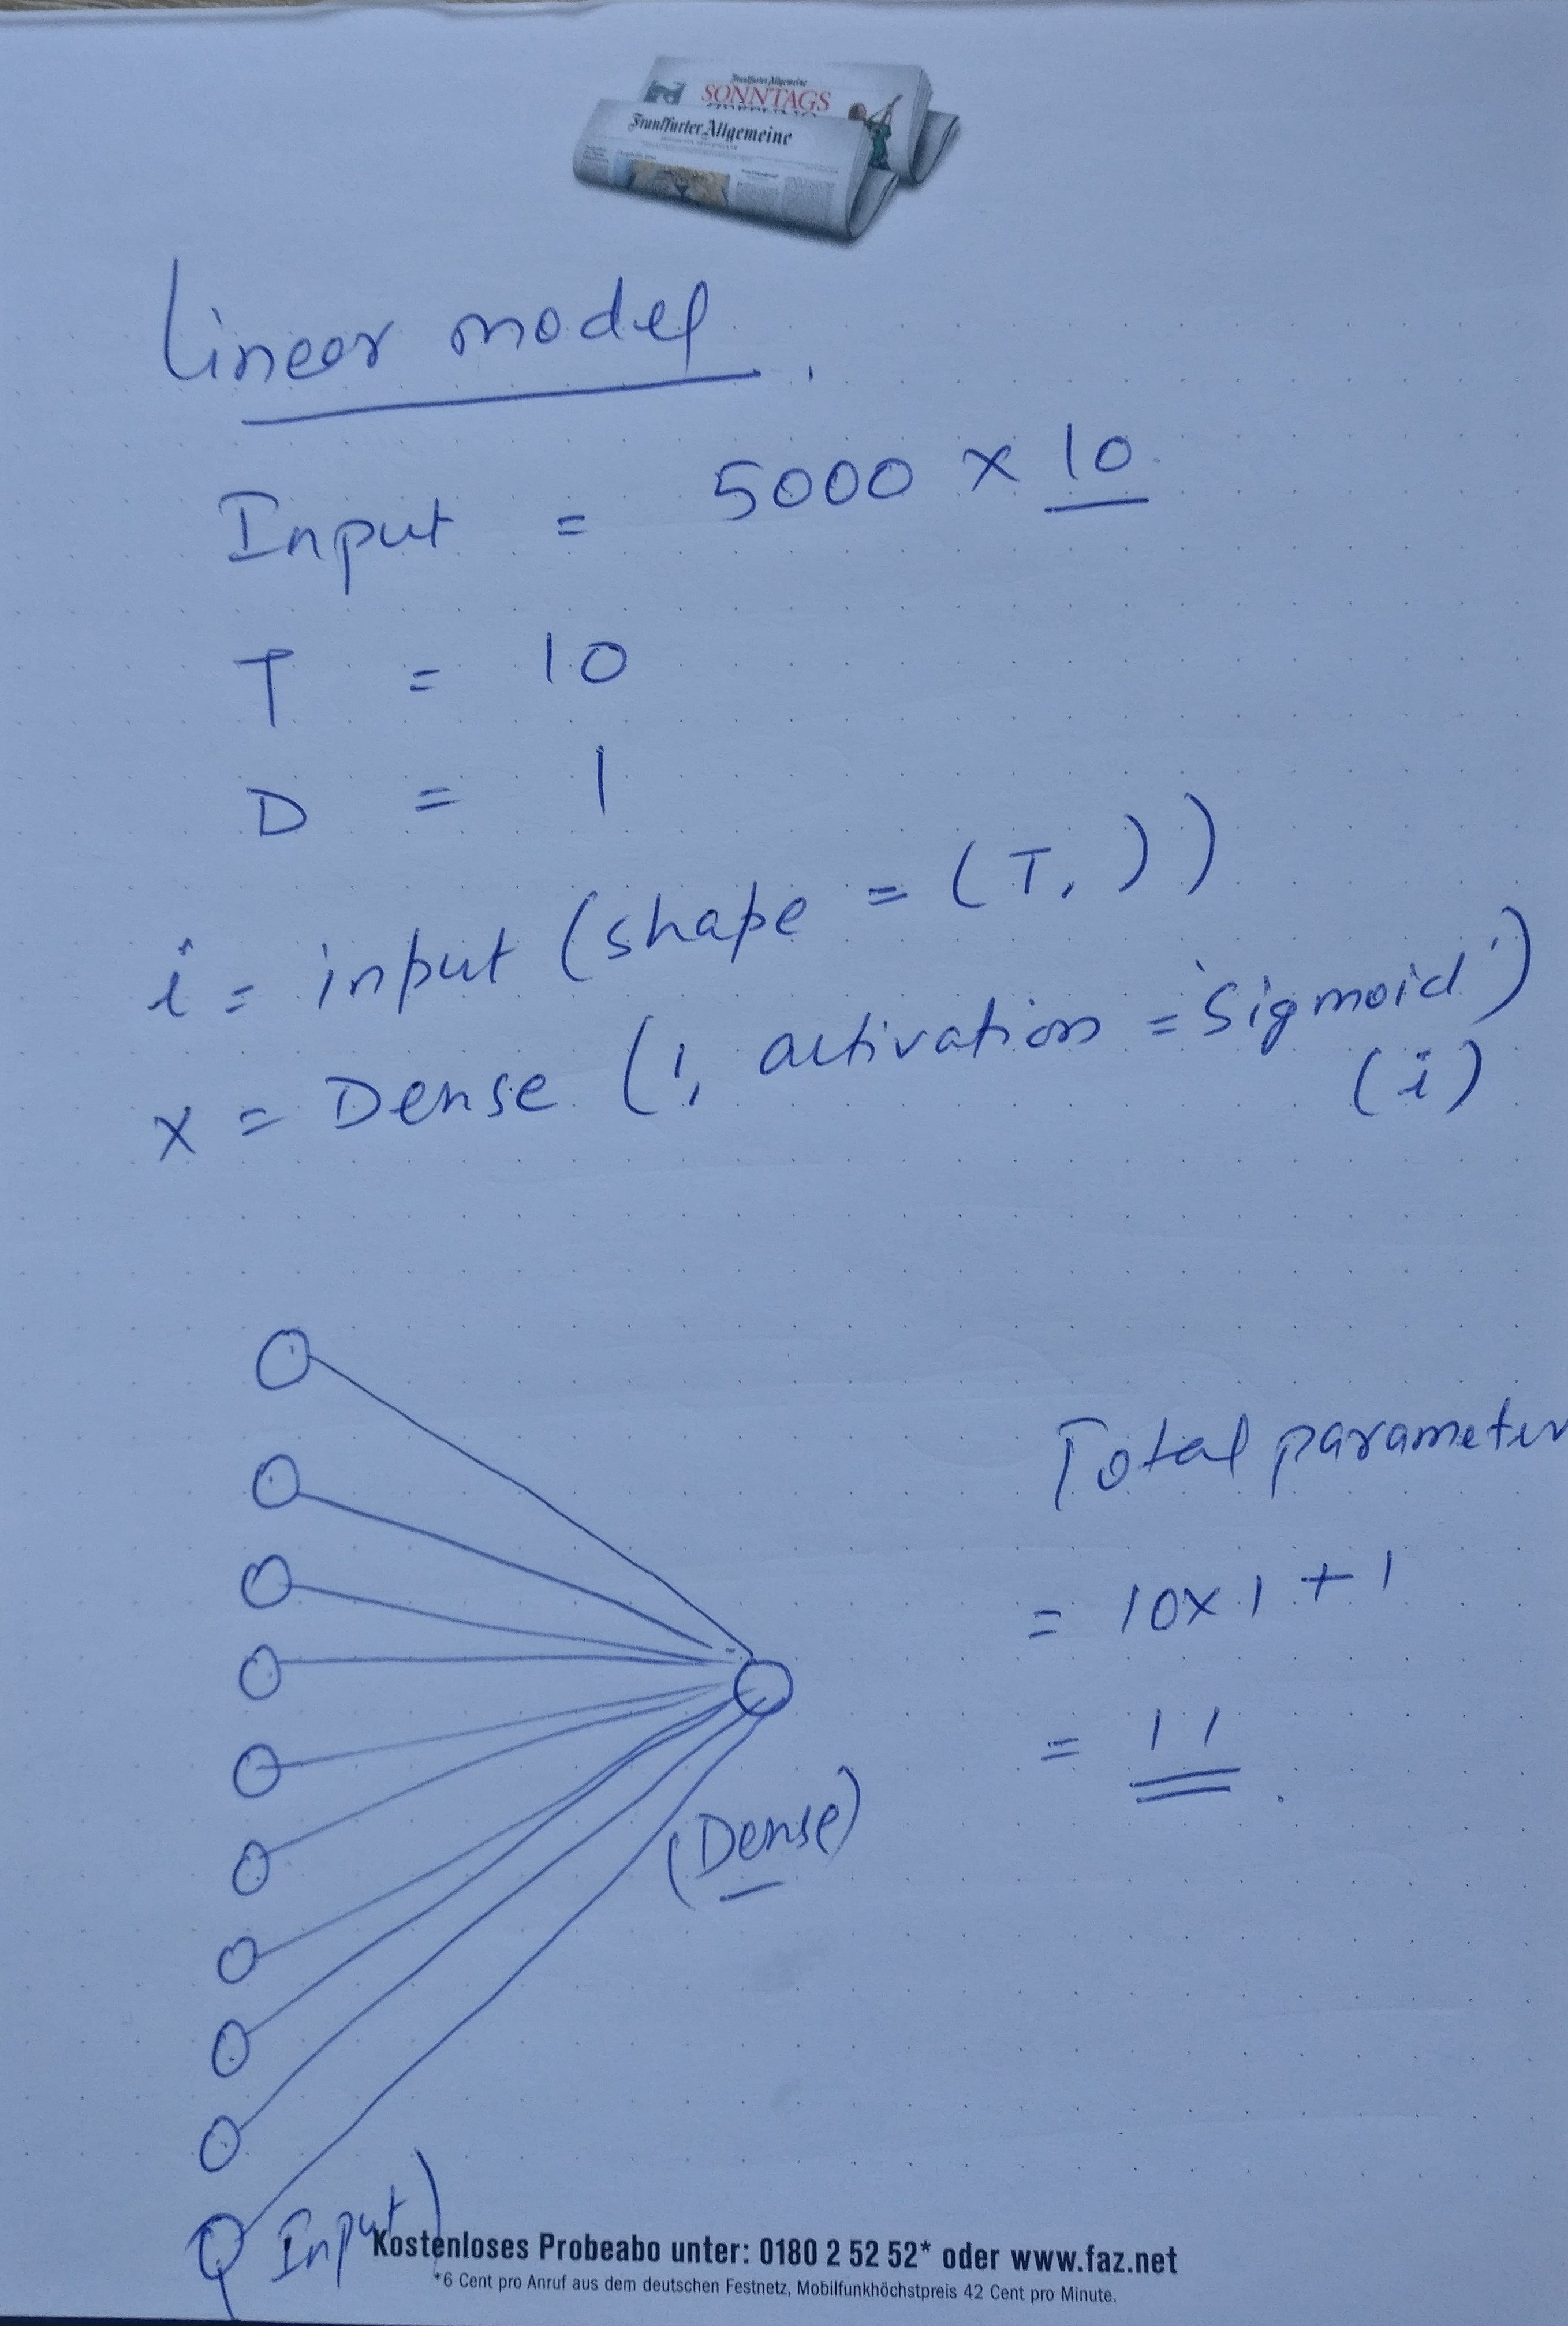 Frankfurter Allgemeine
SONNTAGS
Frankfurter Allgemeine
Linear model.
Input = 5000 × 10
T = 10
D = 1
i = input (shape = (T, ))
x = Dense (1, activation = 'Sigmoid')
(i)
Total parameter
= 10x1 + 1
= 11.
(Dense)
Input)
Kostenloses Probeabo unter: 0180 2 52 52* oder www.faz.net
*6 Cent pro Anruf aus dem deutschen Festnetz, Mobilfunkhöchstpreis 42 Cent pro Minute.